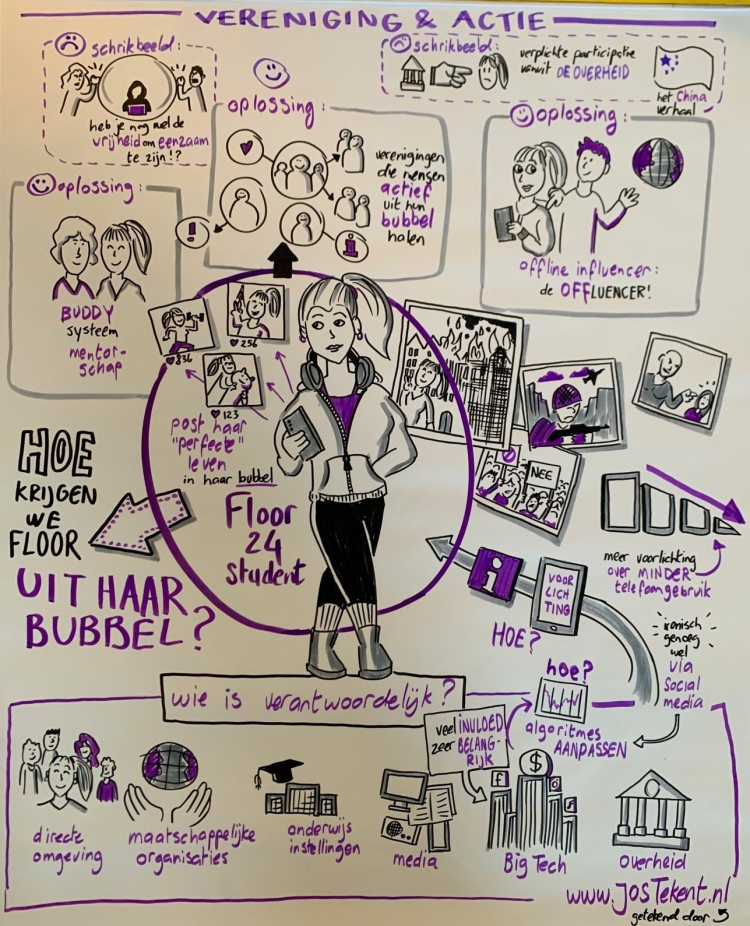 VERENIGING & ACTIE
schrikbeeld:
heb je nog wel de
vrijheid om eenzaam
te zijn!?
oplossing:
verenigingen
die mensen
actief
uit hun
bubbel
halen
!
i
schrikbeeld:
verplichte participatie
vanuit DE OVERHEID
het China
verhaal
oplossing:
offline influencer:
de OFFLUENCER!
oplossing:
BUDDY
systeem
mentor-
schap
836
256
123
post haar
"perfecte"
leven
in haar bubbel
Floor
24
student
HOE
KRIJGEN
WE
FLOOR
UIT HAAR
BUBBEL?
NEE
meer voorlichting
over MINDER
telefoongebruik
i
VOOR
LICH
TING
HOE?
ironisch
genoeg
wel
via
Social
media
hoe?
algoritmes
AANPASSEN
wie is verantwoordelijk?
veel INVLOED
zeer BELANG-
RIJK
directe
omgeving
maatschappelijke
organisaties
onderwijs
instellingen
media
$
f
Big Tech
overheid
www.JosTekent.nl
getekend door J